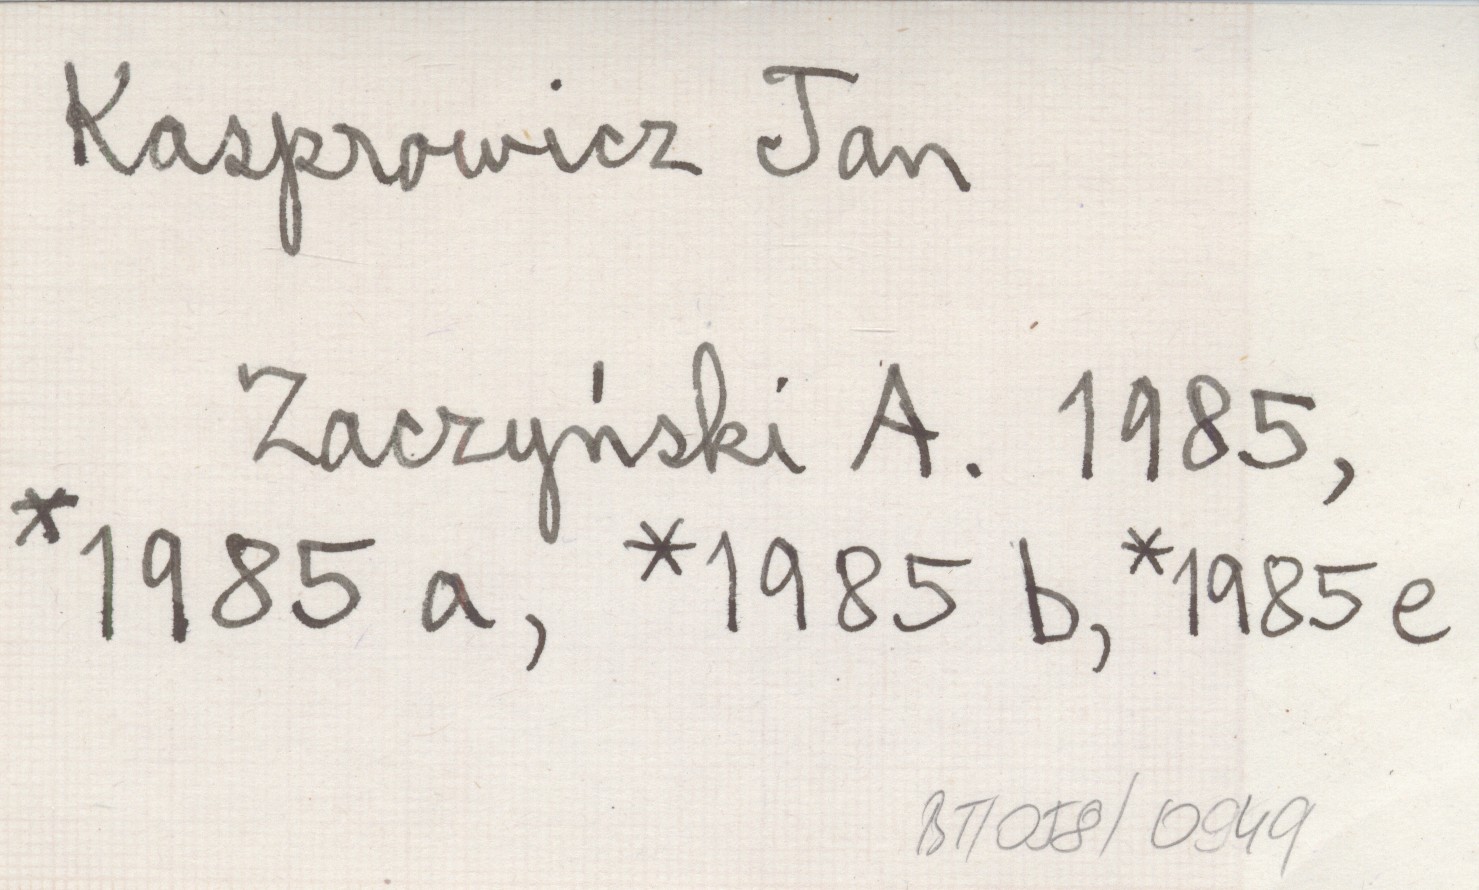 Kasprowicz Jan
Zaczyński A. 1985,
*1985 a, *1985 b, *1985 e
BT/058/0949